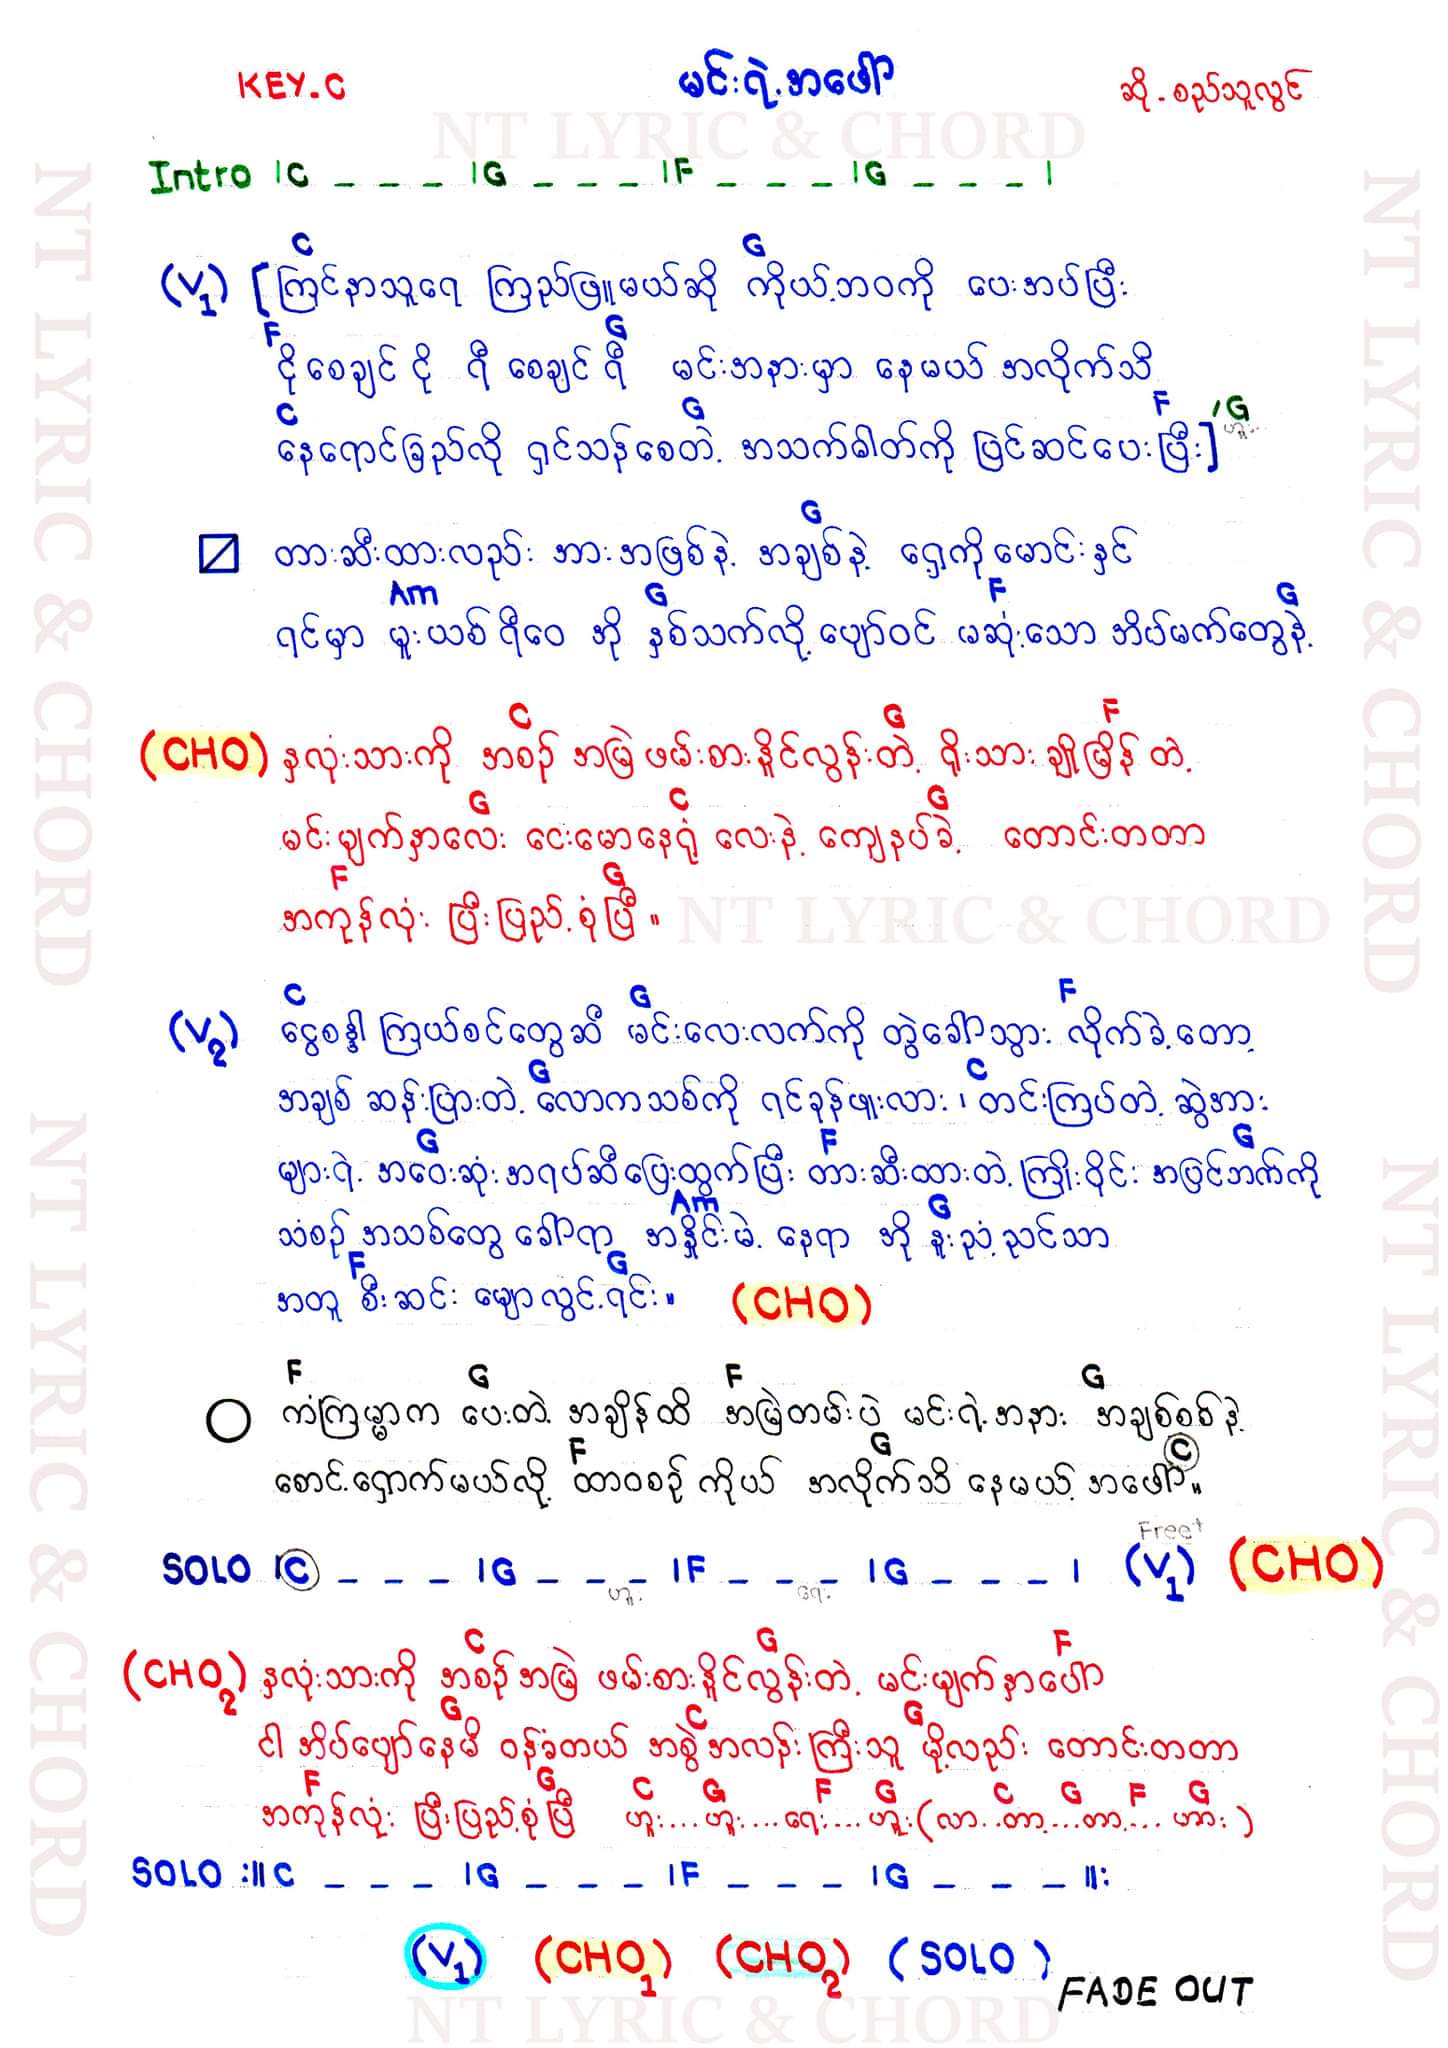 KEY.C မင်းရဲ့အဖော် ဆို - စည်သူလွင်
NT LYRIC & CHORD
Intro |C _ _ _ |G _ _ _ |F _ _ _ |G _ _ _ |
C G
(V1) [ကြင်နာသူရေ ကြည်ဖြူမယ်ဆို ကိုယ့်ဘဝကို ပေးအပ်ပြီး
F G
ငို စေချင် ငို ရီ စေချင် ရီ မင်းအနားမှာ နေမယ် အလိုက်သိ
C G F / G
နေရောင်ခြည်လို ရှင်သန်စေတဲ့ အသက်ဓါတ်ကို ပြင်ဆင်ပေးပြီး] ဟူး...
G
တားဆီးထားလည်း အားအဖြစ်နဲ့ အချစ်နဲ့ ရှေ့ကိုမောင်းနှင်
Am G F G
ရင်မှာ မူးယစ်ရီဝေ အို နှစ်သက်လို့ ပျော်ဝင် မဆုံးသော အိပ်မက်တွေနဲ့
C G F
(CHO) နှလုံးသားကို အစဉ် အမြဲ ဖမ်းစားနိူင်လွန်းတဲ့ ရိုးသား ချိုမြိန် တဲ့
G C G
မင်းမျက်နှာလေး ငေးမောနေရုံ လေးနဲ့ ကျေနပ်ခဲ့ တောင်းတတာ
F G
အကုန်လုံး ပြီးပြည့်စုံပြီ ။
NT LYRIC & CHORD
C G F
(V2) ငွေစန္ဒါ ကြယ်စင်တွေဆီ မင်းလေးလက်ကို တွဲခေါ်သွား လိုက်ခဲ့တော့
G C
အချစ် ဆန်းပြားတဲ့ လောကသစ်ကို ရင်ခုန်ဖူးလား ၊ တင်းကြပ်တဲ့ ဆွဲအား
G F G
များရဲ့ အဝေးဆုံးအရပ်ဆီပြေးထွက်ပြီး တားဆီးထားတဲ့ ကြိုးဝိုင်း အပြင်ဘက်ကို
Am G
သံစဉ် အသစ်တွေ ခေါ်ရာ အနှိူင်းမဲ့ နေရာ အို နူးညံ့ညင်သာ
F G
အတူ စီးဆင်း မျောလွင့်ရင်း ။ (CHO)
F G F G
ကံကြမ္မာက ပေးတဲ့ အချိန်ထိ အမြဲတမ်းပဲ မင်းရဲ့အနား အချစ်စစ်နဲ့
F G C
စောင့်ရှောက်မယ်လို့ ထာဝစဉ် ကိုယ် အလိုက်သိ နေမယ့် အဖော် ။
Free+
SOLO |C _ _ _ |G _ _ _ |F _ _ _ |G _ _ _ | (V1) (CHO)
ဟူး. ရေး.
C G F
(CHO2) နှလုံးသားကို အစဉ်အမြဲ ဖမ်းစားနိူင်လွန်းတဲ့ မင်းမျက်နှာပေါ်
G C G
ငါ အိပ်ပျော်နေမိ ဝန်ခံတယ် အစွဲအလန်းကြီးသူ မို့လည်း တောင်းတတာ
F G C G F G C G F G
အကုန်လုံး ပြီးပြည့်စုံပြီ ဟူး....ဟူး....ရေး....ဟူး(လာ..တာ့...တာ့....ဟား)
SOLO :||C _ _ _ |G _ _ _ |F _ _ _ |G _ _ _ ||:
(V1) (CHO1) (CHO2) (SOLO)
FADE OUT
NT LYRIC & CHORD
NT LYRIC & CHORD
NT LYRIC & CHORD
NT LYRIC & CHORD
NT LYRIC & CHORD